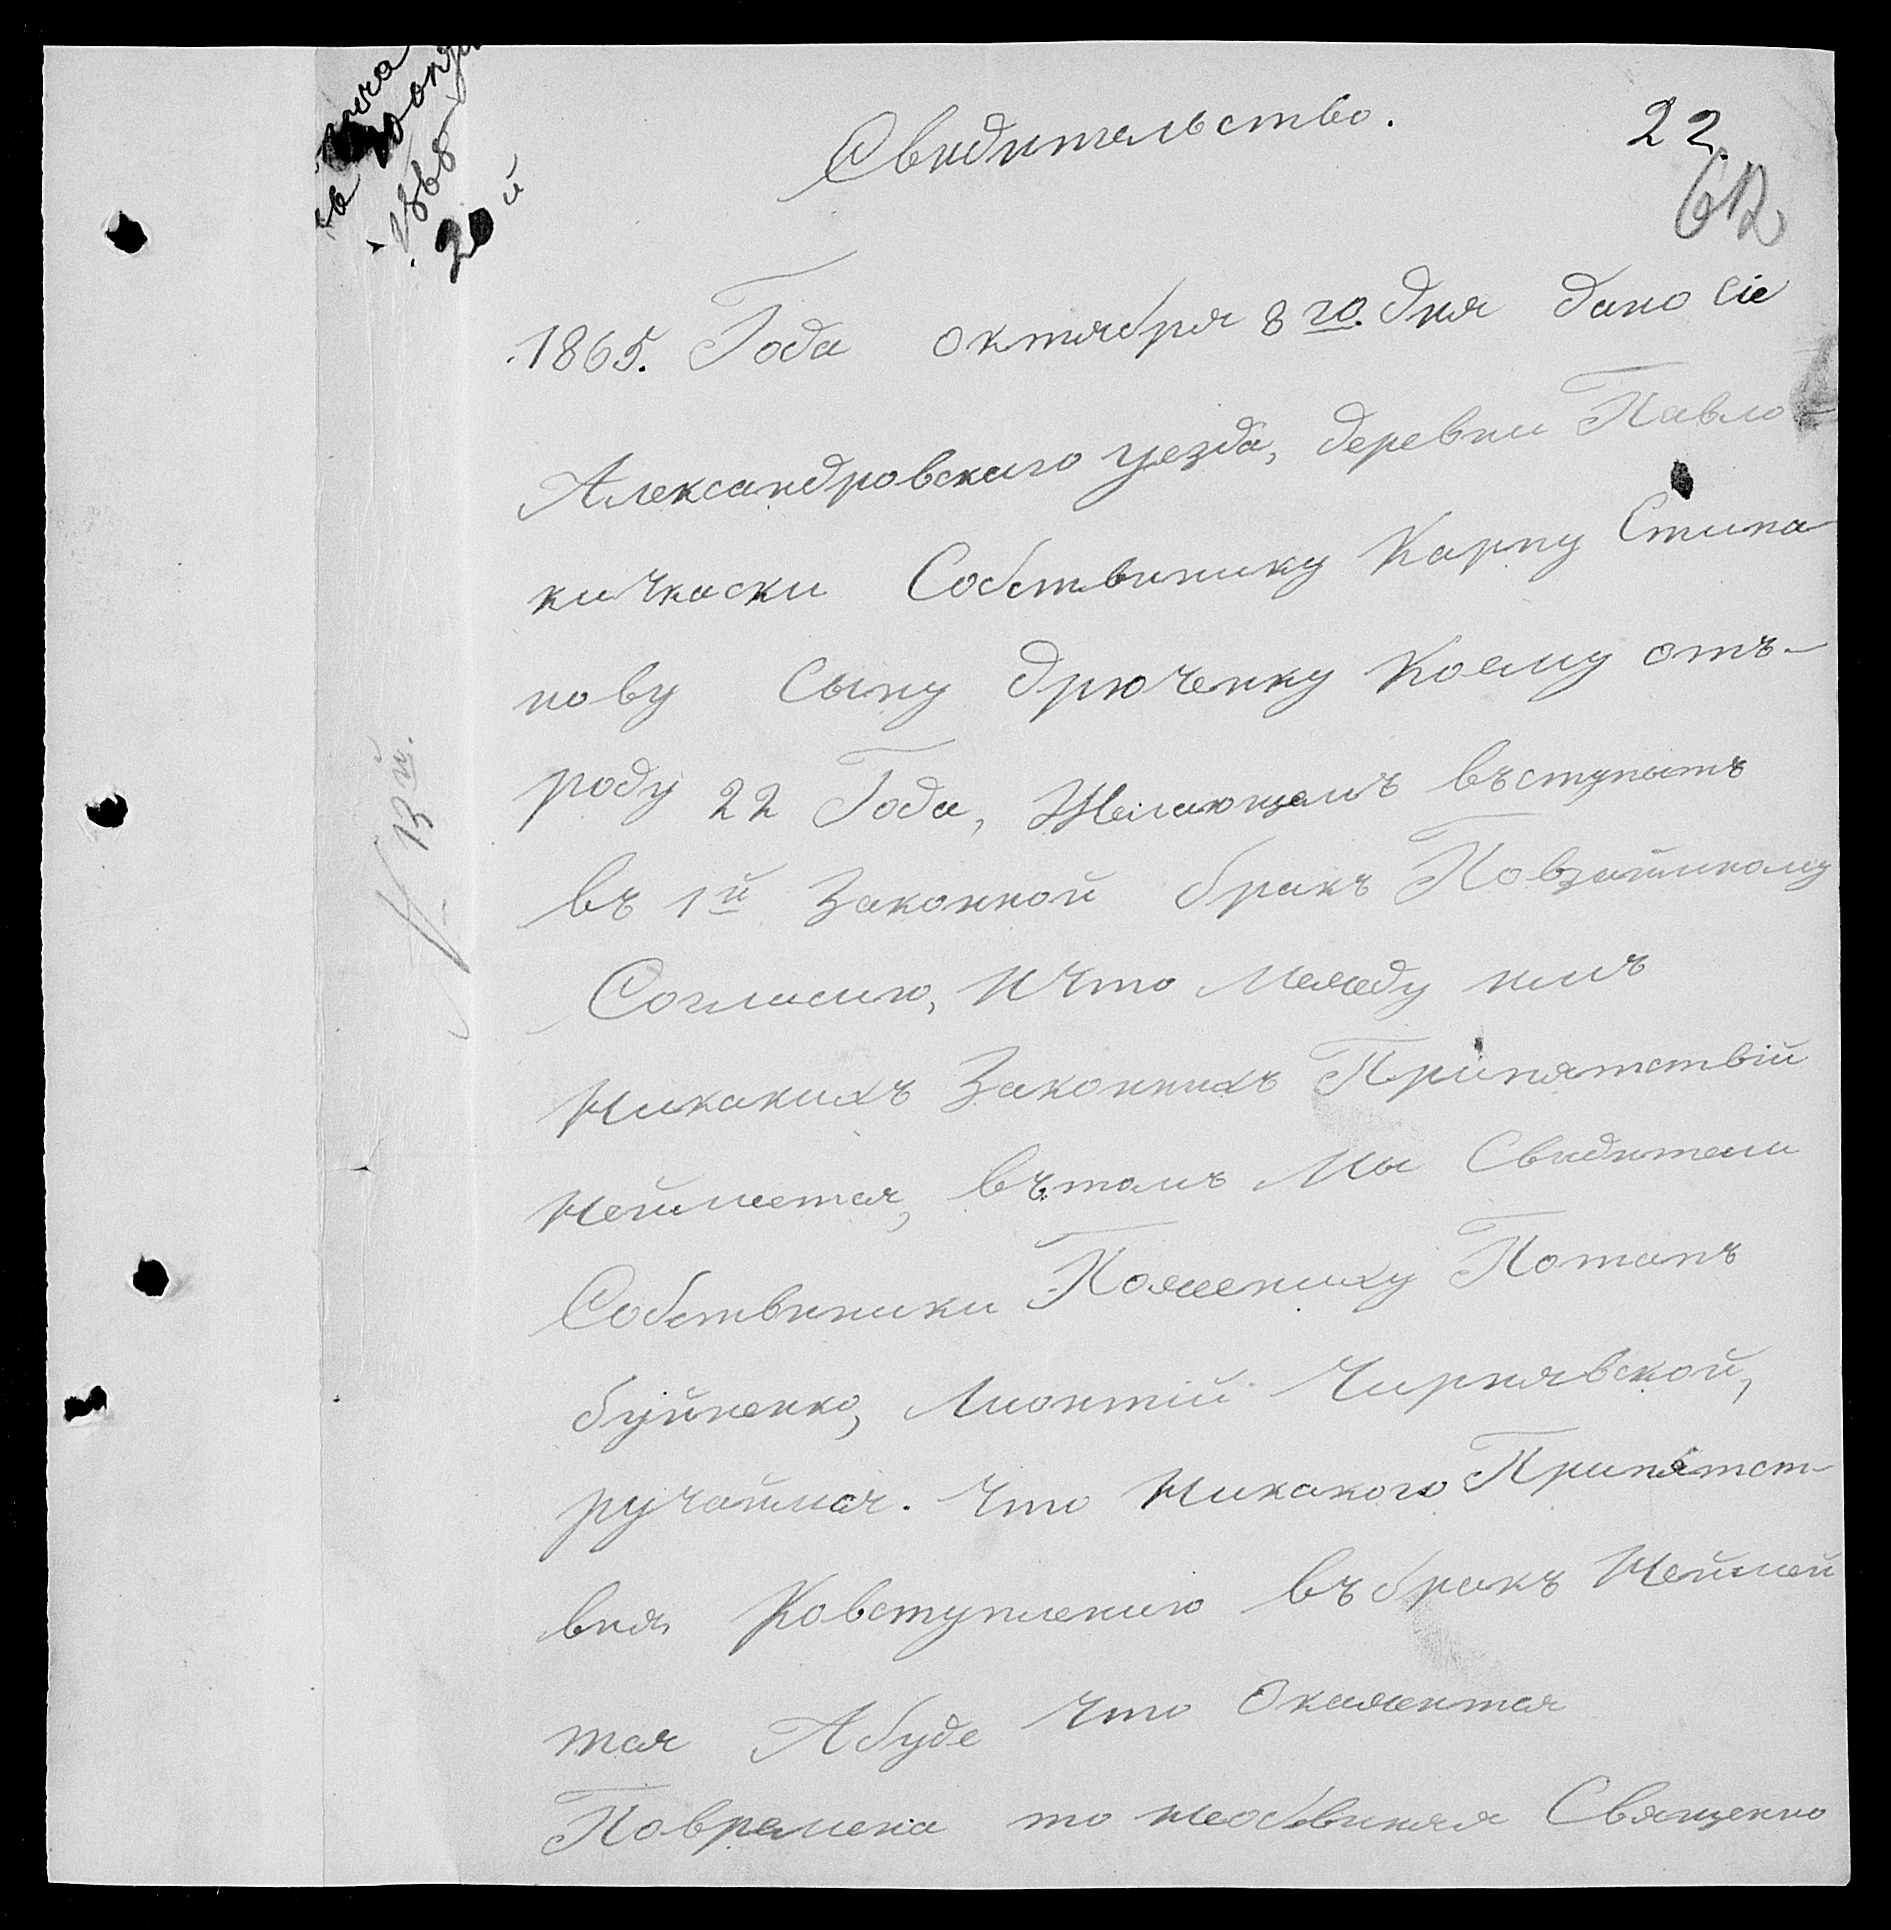 Свидительство.
22.
62
1868
20й
1865. Года октября 8го. дня дано сіе
Александровскаго уезда, деревни Павло-
кичкаски Собствинику Карпу Стипа
нову сыну дрюченку Коему отъ-
роду 22 Года, Желающемъ въступить
въ 1й Законной бракъ Повзаимному
Согласию, ИЧто Между нимъ
Никакихъ Законнихъ Припятствій
Неимеетая, въ томъ Мы Свидители
Собствиники Поженику Потапъ
буйненко, Лионтій Чирнявской,
ручаимся. Что Никакого Припятст-
вия Ковступлению въ бракъ Неимей
тая А буде Что Окажентая
Повремена то необвиняя Священно
№ 13й.